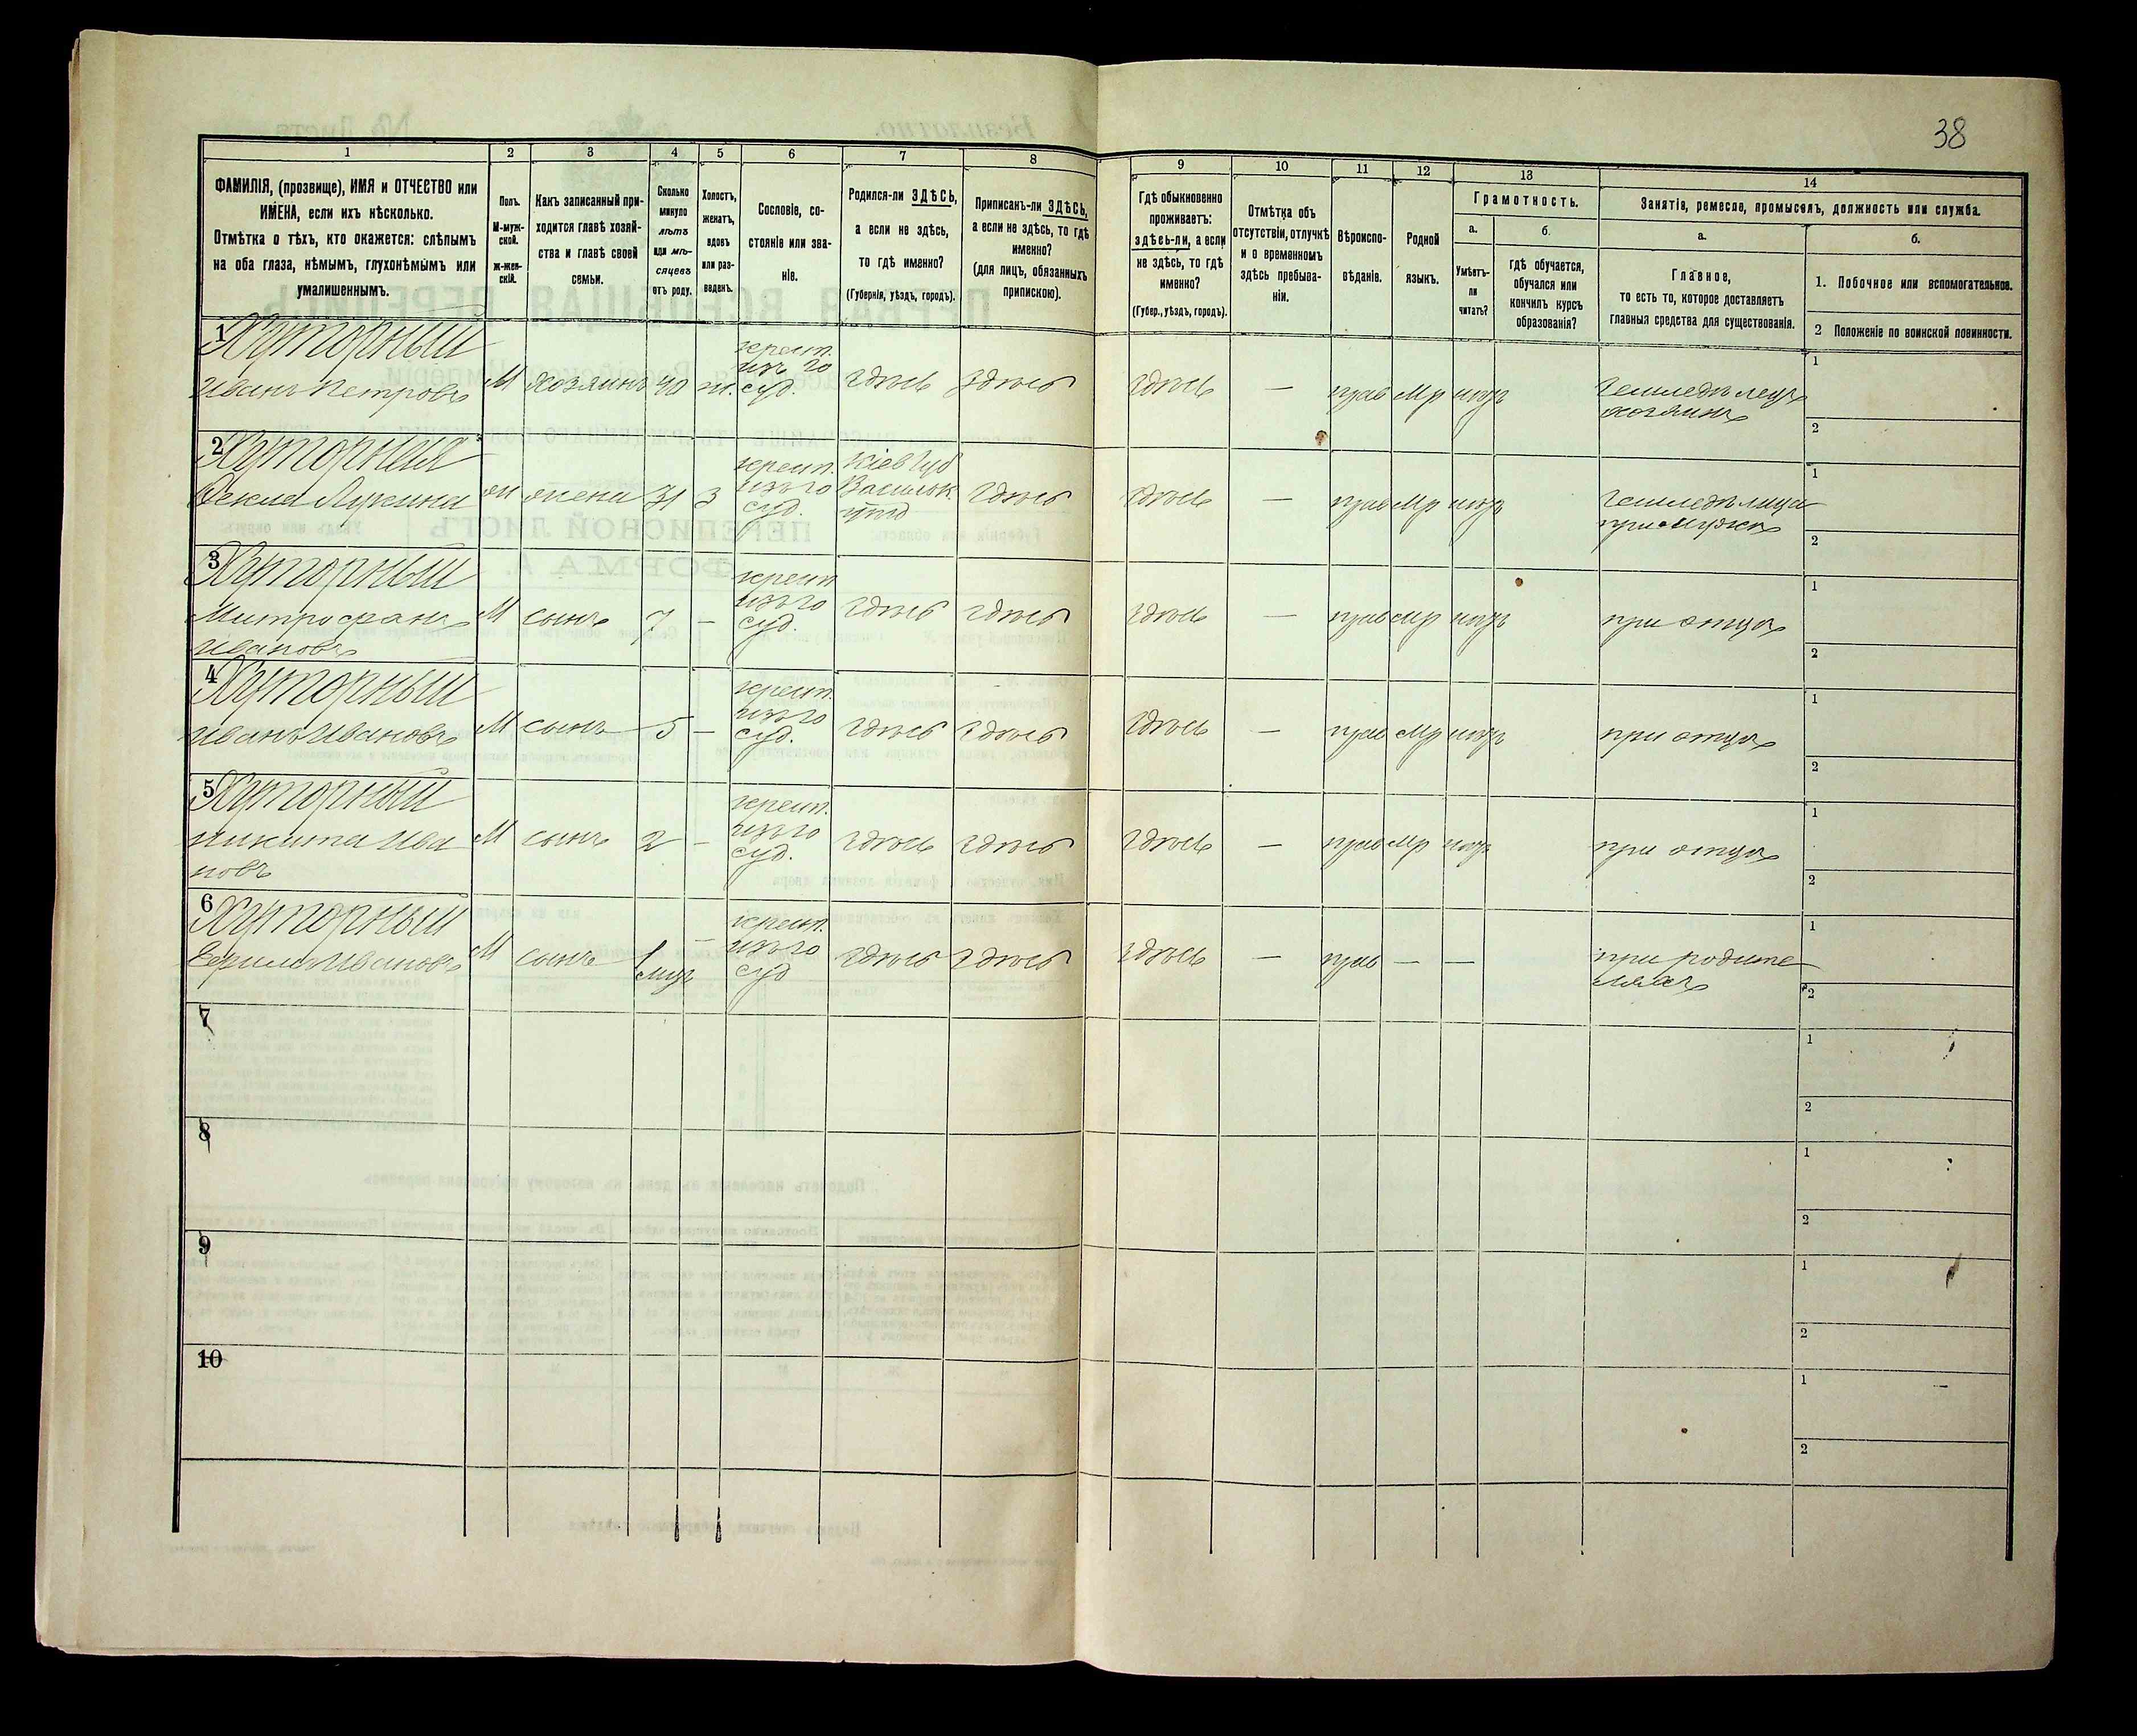 38
1
2
3
4
5
6
7
8
9
10
11
12
13
14
ФАМИЛІЯ, (прозвище), ИМЯ и ОТЧЕСТВО или
ИМЕНА, если ихъ нѣсколько.
Отмѣтка о тѣхъ, кто окажется: слѣпымъ
на оба глаза, нѣмымъ, глухонѣмымъ или
умалишеннымъ.
Полъ.
М-муж-
ской.
ж-жен-
скій.
Какъ записанный при-
ходится главѣ хозяй-
ства и главѣ своей
семьи.
Сколько
минуло
лѣтъ
или мѣ-
сяцевъ
отъ роду.
Холостъ,
женатъ,
вдовъ
или раз-
веденъ.
Сословіе, со-
стояніе или зва-
ніе.
Родился-ли ЗДѢСЬ,
а если не здѣсь,
то гдѣ именно?
(Губернія, уѣздъ, городъ).
Приписанъ-ли ЗДѢСЬ,
а если не здѣсь, то гдѣ
именно?
(для лицъ, обязанныхъ
припискою).
Гдѣ обыкновенно
проживаетъ:
здѣсь-ли, а если
не здѣсь, то гдѣ
именно?
(Губер., уѣздъ, городъ).
Отмѣтка объ
отсутствіи, отлучкѣ
и о временномъ
здѣсь пребыва-
ніи.
Вѣроиспо-
вѣданіе.
Родной
языкъ.
Грамотность.
а.
Умѣетъ-
ли
читать?
б.
гдѣ обучается,
обучался или
кончилъ курсъ
образованія?
Занятія, ремесло, промыселъ, должность или служба.
а.
Главное,
то есть то, которое доставляетъ
главныя средства для существованія.
б.
1. Побочное или вспомогательное.
2 Положеніе по воинской повинности.
1 Хуторный
Иванъ Петровъ
М хозяинъ 40 ж.
крест.
изъ го
суд.
здѣсь здѣсь здѣсь — прав мр нѣтъ
Земледѣлецъ
хозяинъ
1
2
2 Хуторная
Фекла Лукина
ж жена 31 з
крест.
изъ го
суд.
Кіев губ
Васильк.
уѣзд
здѣсь здѣсь — прав мр нѣтъ
Земледѣлица
при мужѣ
1
2
3 Хуторный
Митрофанъ
Ивановъ
М сынъ 7 —
крест
изъ го
суд.
здѣсь здѣсь здѣсь — прав мр нѣтъ при отцѣ
1
2
4 Хуторный
Иванъ Ивановъ
М сынъ 5 —
крест.
изъ го
суд.
здѣсь здѣсь здѣсь — прав мр нѣтъ при отцѣ
1
2
5 Хуторный
Никита Ива
новъ
М сынъ 2 —
крест.
изъ го
суд.
здѣсь здѣсь здѣсь — прав мр нѣтъ при отцѣ
1
2
6 Хуторный
Ивановъ
М сынъ 1 —
крест.
изъ го
суд
здѣсь здѣсь здѣсь — прав — —
при родите
ляхъ
1
2
7
1
2
8
1
2
9
1
2
10
1
2